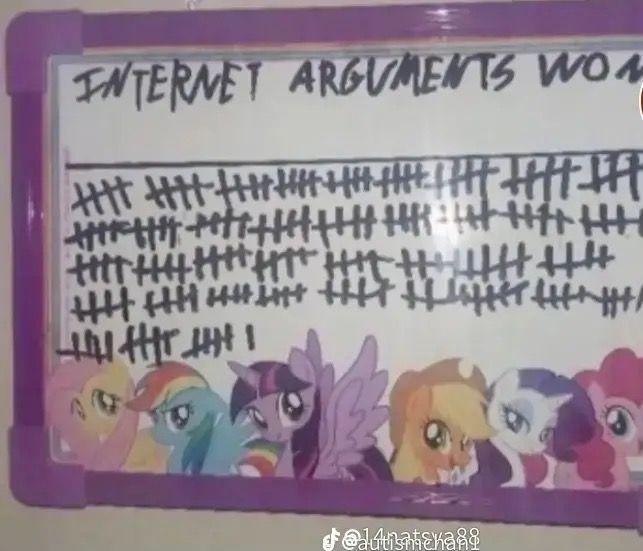 INTERNET ARGUMENTS WON
@14natsya88
@autismchan1